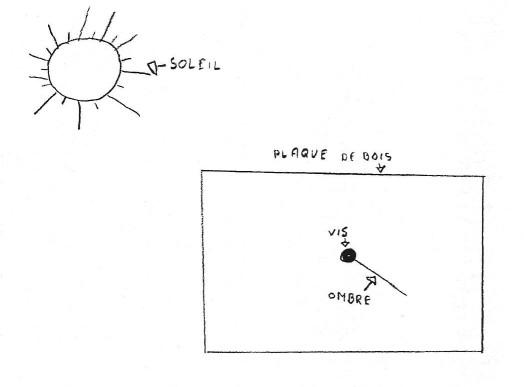 SOLEIL
PLAQUE DE BOIS
VIS
OMBRE